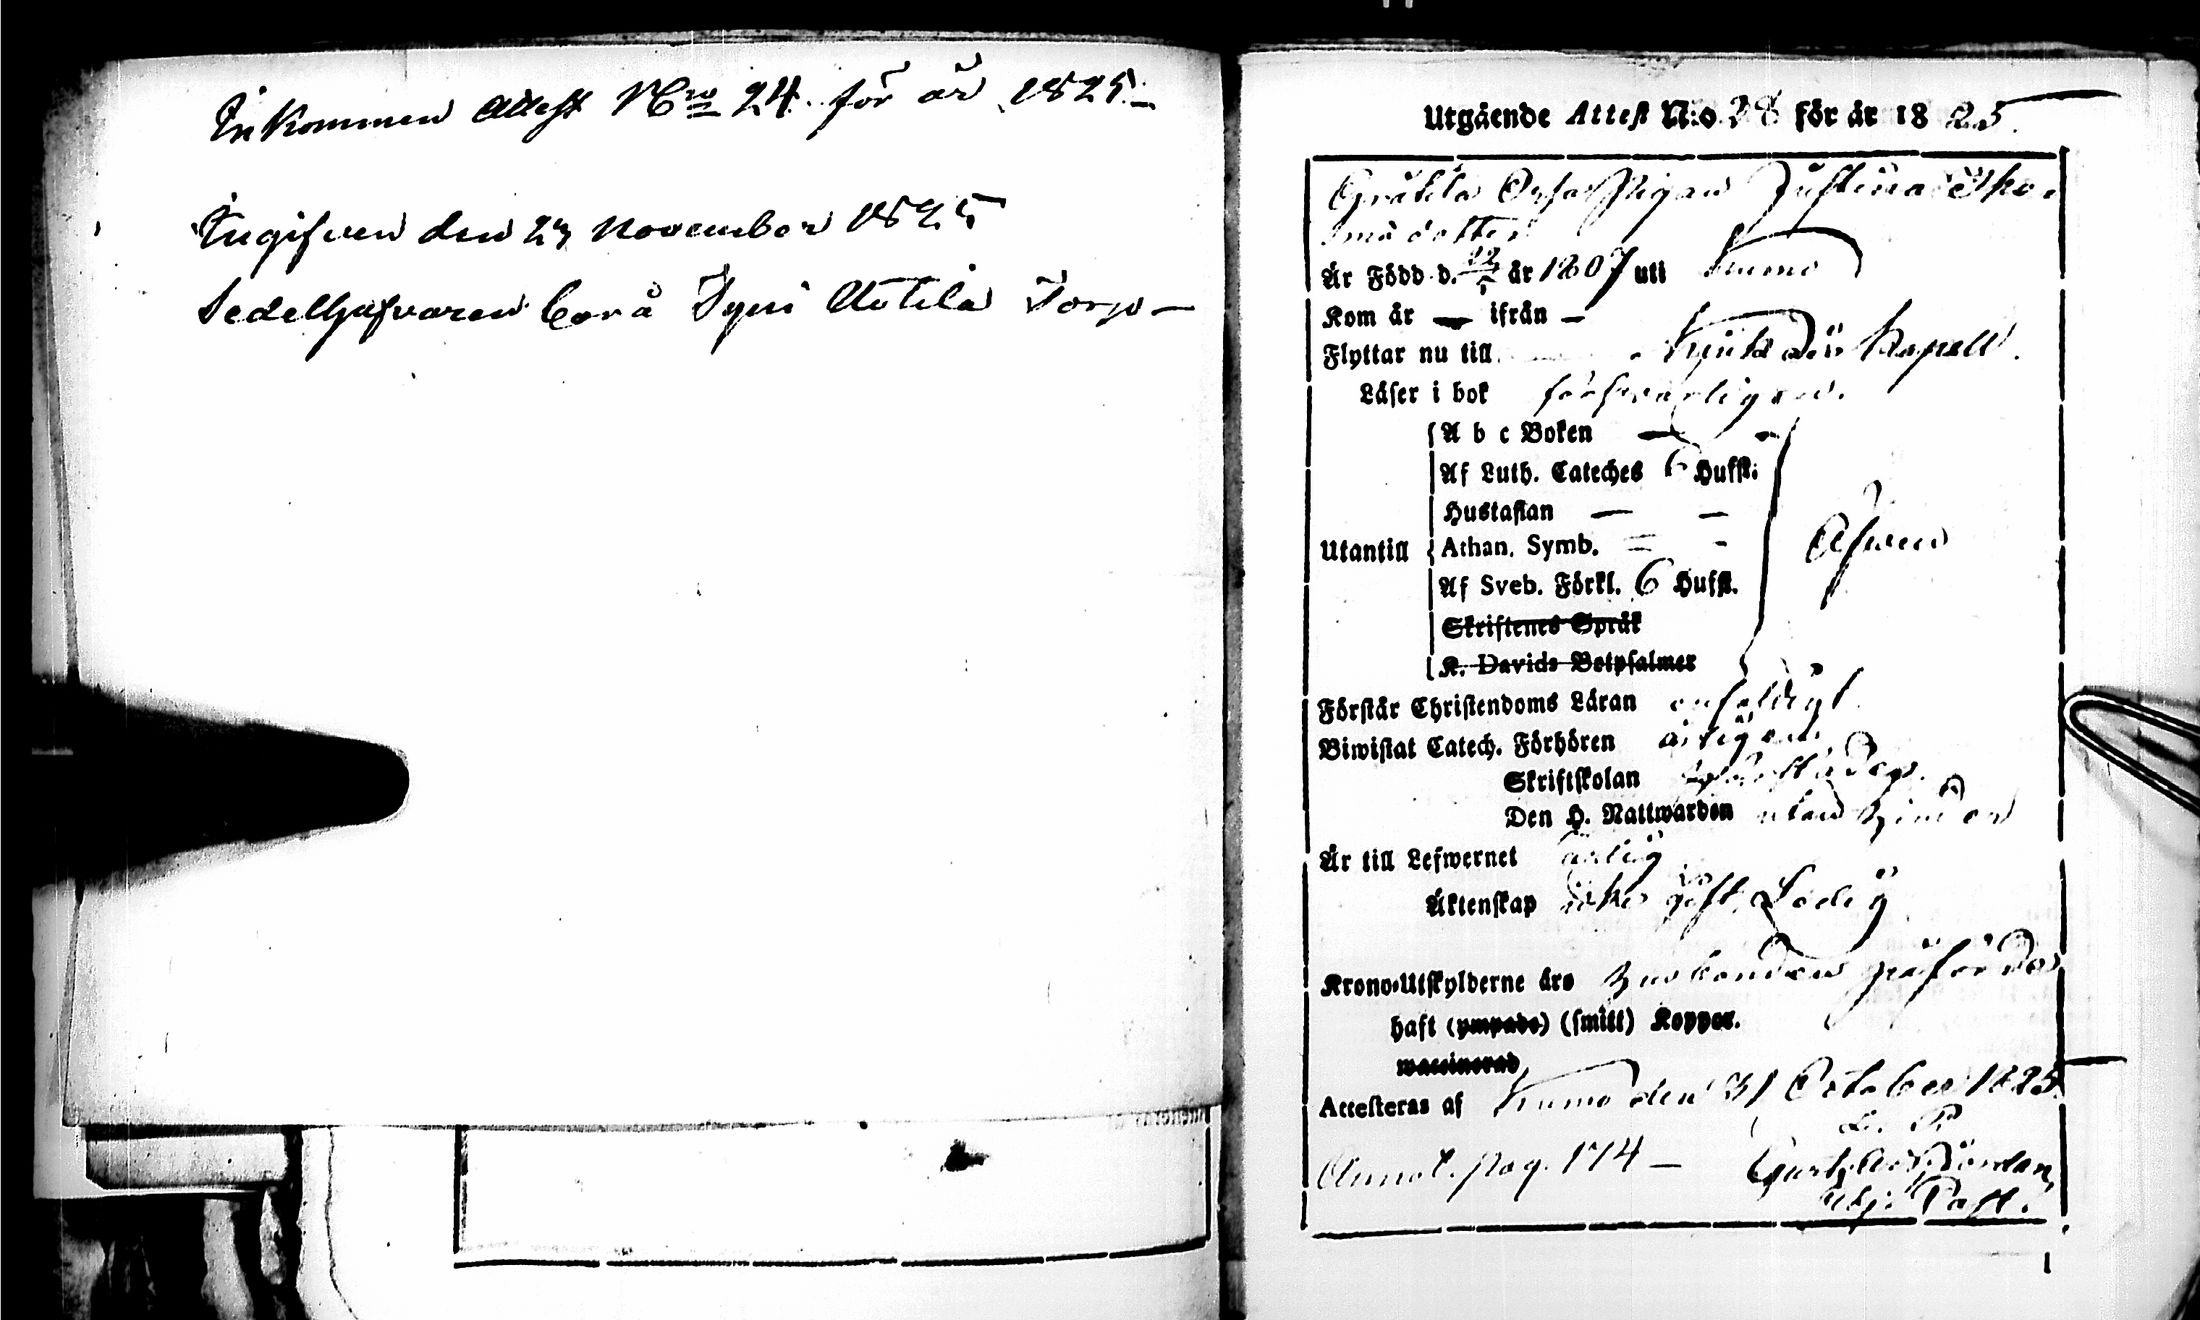 Inkommen Attest N:ro 24 för år 1825
Ingifven den 27 November 1825
Sedelhafvaren bor å Torp
Utgående Attest N:o 38 för år 1825.
Pigan Justina Tho-
masdotter
Är Född d. 22 år 1807 uti Kumo
Kom år — ifrån —
Flyttar nu till Kapell.
Läser i bok försvarligen.
A b c Boken — -
Af Luth. Cateches 6 Hufst:
Hustaflan — —
Utantill Athan. Symb. = - Äfwen
Af Sveb. Förkl. 6 Hufst.
Skriftenes Språk
K. Davids Botpsalmer
Förstår Christendoms Läran enfaldigt
Biwistat Catech. Förhören årligen
Skriftskolan
Den H. Nattwarden utan hinder
Är till Lefwernet ärlig
Äktenskap icke gift, Ledig
Krono-Utskylderne äro husbonden påförda
haft (ympade) (smitt) Koppor.
waccinerad
Attesteras af Kumo den 31 October 1825
Annot. pag. 174 —
Past.